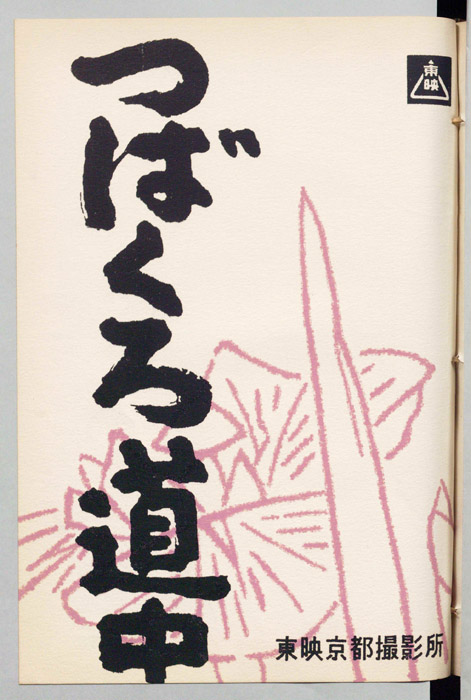 つばくろ道中
東映
東映京都撮影所